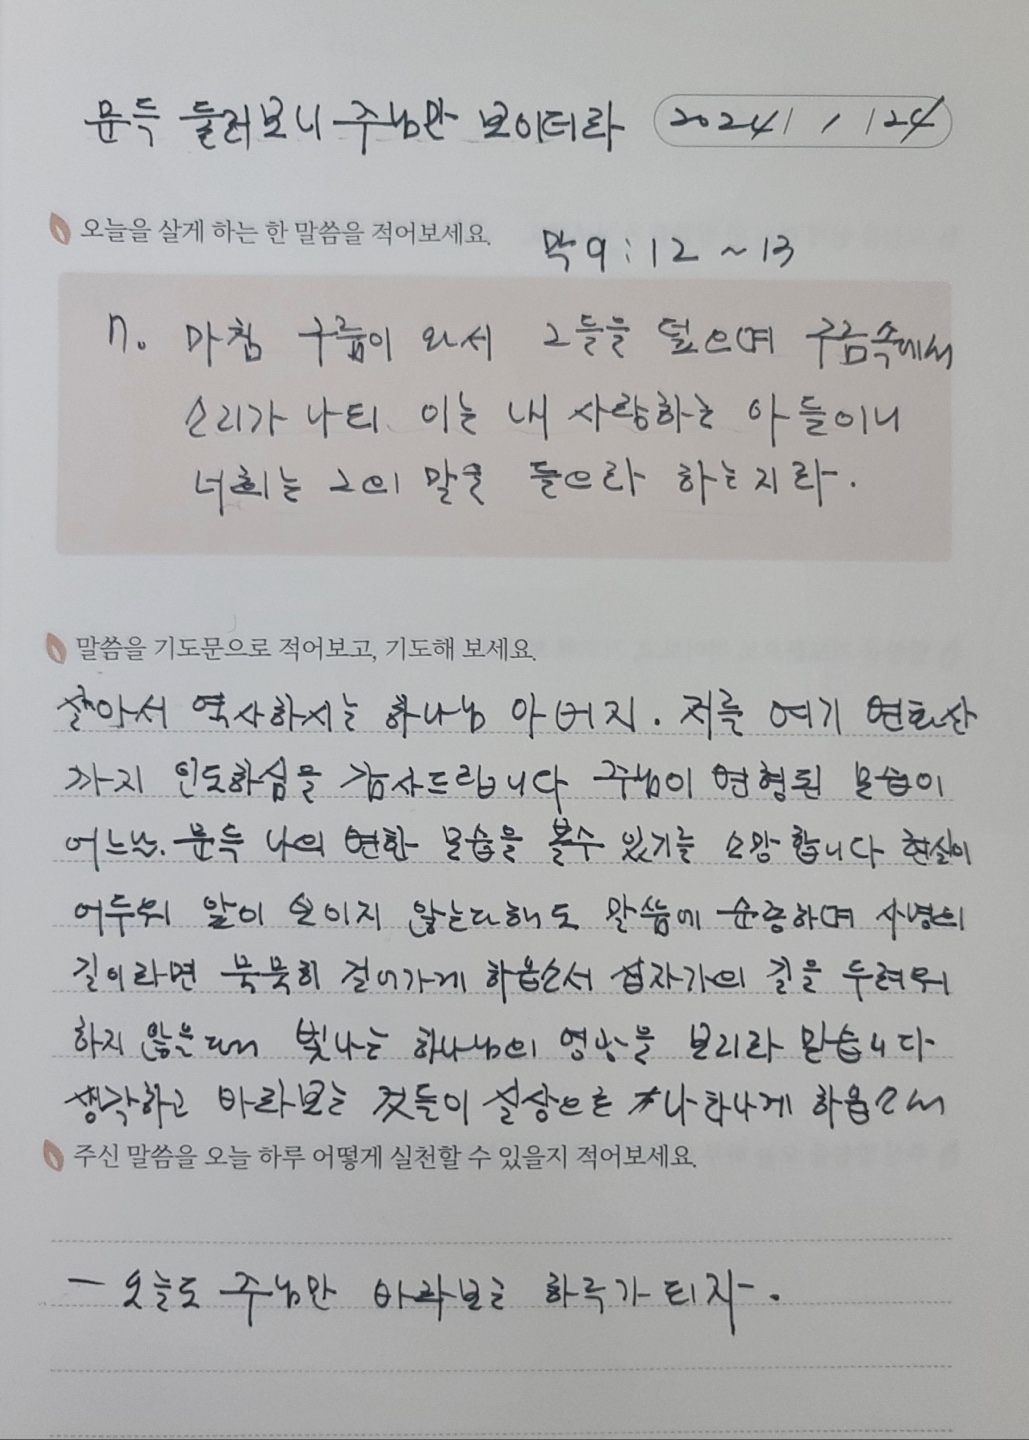 문득 둘러보니 주님만 보이더라 2024 / 1 / 24
오늘을 살게 하는 한 말씀을 적어보세요.
막 9 : 12 ~ 13
7. 마침 구름이 와서 그들을 덮으며 구름속에서
소리가 나되 이는 내 사랑하는 아들이니
너희는 그의 말을 들으라 하는지라.
말씀을 기도문으로 적어보고, 기도해 보세요.
살아서 역사하시는 하나님 아버지. 저를 여기 변화산
까지 인도하심을 감사드립니다 주님이 변형된 모습이
어느날. 문득 나의 변한 모습을 볼수 있기를 소망합니다 현실이
어두워 앞이 보이지 않는다해도 말씀에 순종하며 사명의
길이라면 묵묵히 걸어가게 하옵소서 십자가의 길을 두려워
하지 않을 때 빛나는 하나님의 영광을 보리라 믿습니다
생각하고 바라보는 것들이 실상으로 나타나게 하옵소서
주신 말씀을 오늘 하루 어떻게 실천할 수 있을지 적어보세요.
- 오늘도 주님만 바라보는 하루가 되자.